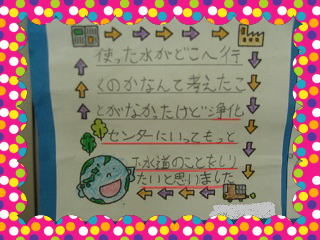 使った水がどこへ行
くのかなんて考えたこ
とがなかたけど浄化
センターにいってもっと
下水道のことをしり
たいと思いました